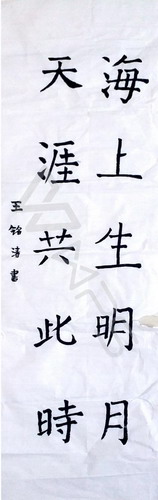 海上生明月
天涯共此時
王铭浩書